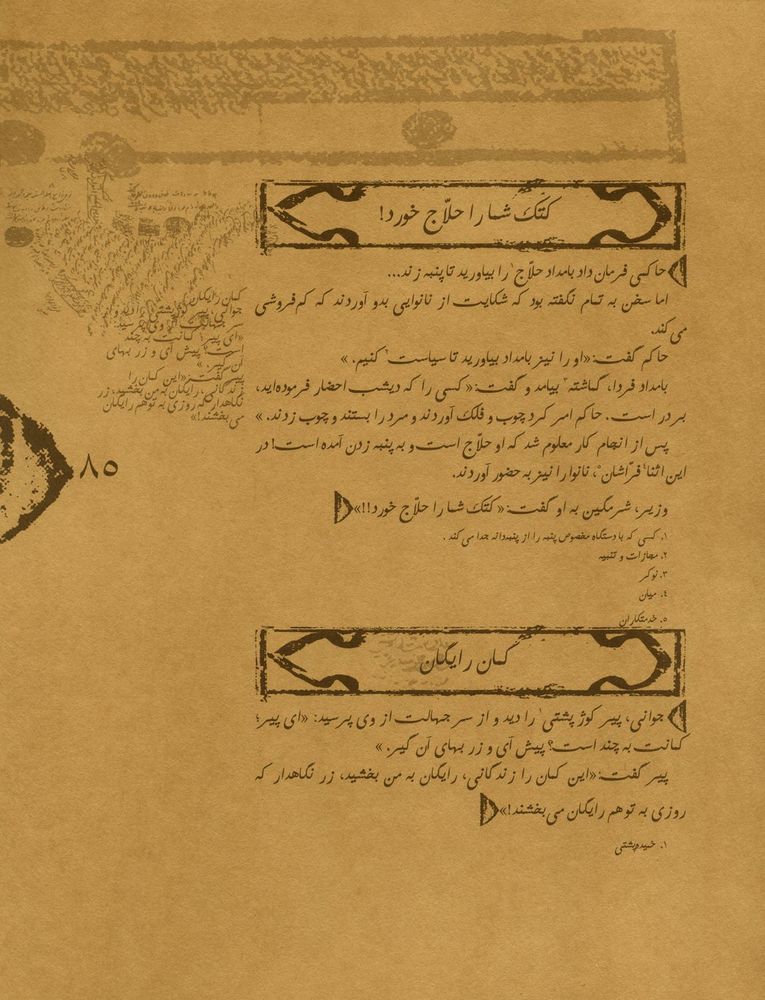 کتک شما را حلاّج خورد!
حاکمی فرمان داد بامداد حلاّج۱ را بیاورید تا پنبه زند...
اما سخن به تمام نگفته بود که شکایت از نانوایی بدو آوردند که کم‌فروشی
می‌کند.
حاکم گفت: «او را نیز بامداد بیاورید تا سیاست۲ کنیم.»
بامداد فردا، گماشته۳ بیامد و گفت: «کسی را که دیشب احضار فرموده‌اید،
بر در است. حاکم امر کرد چوب و فلک آوردند و مرد را بستند و چوب زدند.»
پس از انجام کار معلوم شد که او حلاج است و به پنبه زدن آمده است! در
این اثنا۴ فرّاشان۵، نانوا را نیز به حضور آوردند.
وزیر، شرمگین به او گفت: «کتک شما را حلاّج خورد!!»
۱. کسی که با دستگاه مخصوص پنبه را از پنبه‌دانه جدا می‌کند.
۲. مجازات و تنبیه
۳. نوکر
۴. میان
۵. خدمتکاران
کمان رایگان
جوانی، پیر کوژپشتی۱ را دید و از سر جهالت از وی پرسید: «ای پیر؛
کمانت به چند است؟ پیش آی و زر بهای آن گیر.»
پیر گفت: «این کمان را زندگانی، رایگان به من بخشید، زر نگاهدار که
روزی به تو هم رایگان می‌بخشند!»
۱. خمیده‌پشتی
کمان رایگان
جوانی، پیر کوژپشتی را دید و از
سر جهالت از وی پرسید:
«ای پیر! کمانت به چند
است؟ پیش آی و زر بهای
آن گیر.»
پیر گفت: «این کمان را
زندگانی، رایگان به من بخشید، زر
نگاهدار که روزی به تو هم رایگان
می‌بخشند!»
۸۵